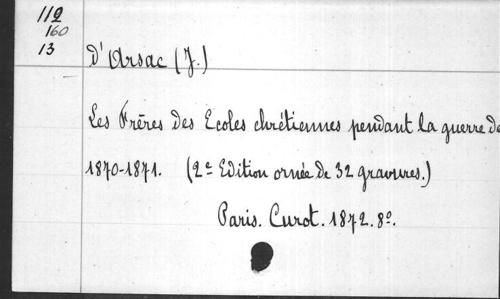 112
160
13
D'Arsac (J.)
Les Frères des Ecoles chrétiennes pendant la guerre de
1870-1871. (2e Edition ornée de 32 gravures.)
Paris. Curot. 1872. 8o.